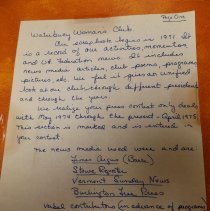 Page One
Waterbury Womans Club
Our scrapbook begins in 1971. It
is a record of our activities, momentos
and Vt. Federation news. It includes
news media articles, club poems, programs
pictures etc. We feel it gives an unified
look at our club through different presidents
and through the years.
We realize your press contest only deals
with May 1974 through the present - April 1975.
This section is marked and is entered in
your contest.
The news media used were and are:
Times Argus (Barre)
Stowe Reporter
Vermont Sunday News
Burlington Free Press
contributors (in advance of programs